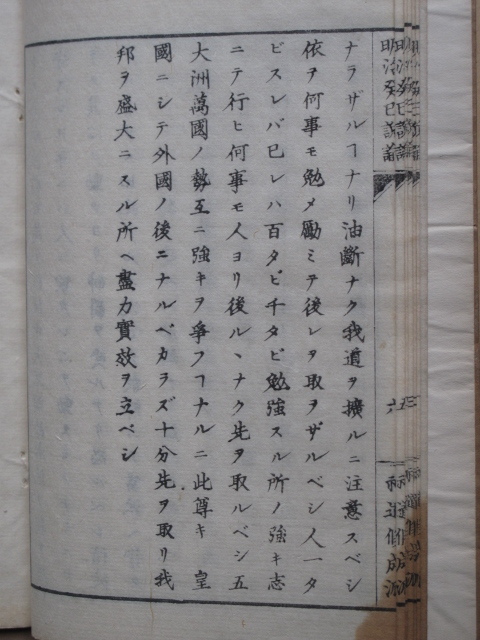 ナラザルヿナリ油斷ナク我道ヲ擴ルニ注意スベシ
依ヲ何事モ勉メ勵ミテ後レヲ取ヲザルベシ人一タ
ビスレバ已レハ百タビ千タビ勉強スル所ノ強キ志
ニテ行ヒ何事モ人ヨリ後ルヽナク先ヲ取ルベシ五
大洲萬國ノ勢互ニ強キヲ爭フヿナルニ此尊キ 皇
國ニシテ外國ノ後ニナルベカラズ十分先ヲ取リ我
邦ヲ盛大ニスル所ヘ盡力實效ヲ立ベシ